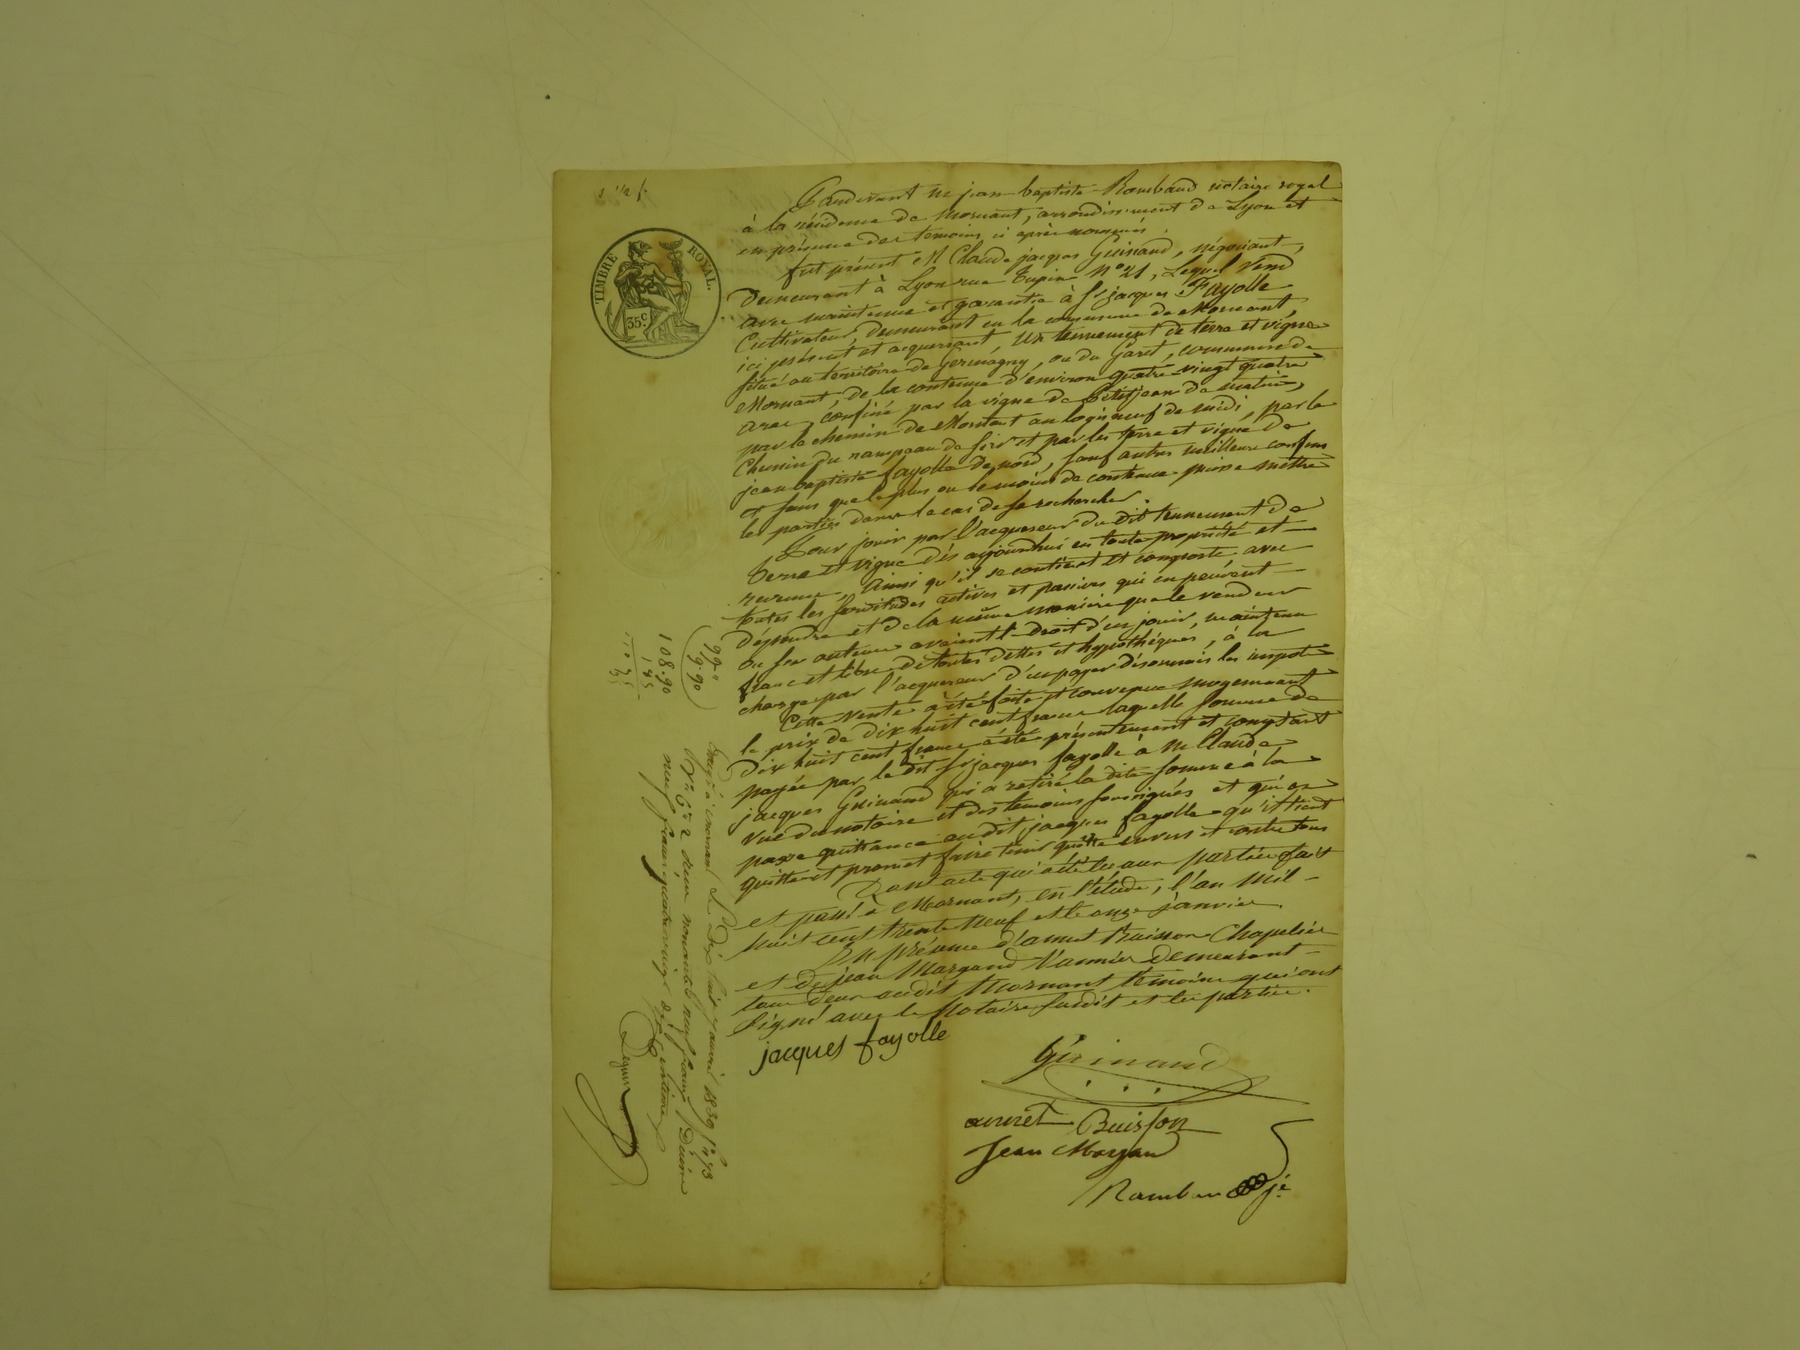 TIMBRE ROYAL.
35c.
Pardevant Me jean baptiste Rambaud notaire royal
à la résidence de Mornant, arrondissement de Lyon et
en présence des temoins ci après nommés,
fut présent Mr Claude jacques Guinand, négociant,
demeurant à Lyon rue Tupin No 21, Lequel Vend
avec maintenue et garantie à Sr jacques Fayolle
Cultivateur, demeurant en la commune de Mornant,
ici présent et acquerrant, un tennement de terre et vigne
situé au territoire de Germagny, ou du Garet, commune de
Mornant, de la contenue d'environ quatre-vingt quatre
ares, confiné par la vigne de Petitjean de matin,
par le chemin de Mornant au logis neuf de midi, par le
Chemin du rampeau de soir et par les terre et vigne de
jean baptiste fayolle de nord, sauf autres meilleurs confins
et sans que le plus ou le moins de contenue puisse mettre
les parties dans le cas de se rechercher.
Pour jouir par l'acquereur du dit tennement de
terre et vigne dès aujourdhui en toute propriété et
revenus, Ainsi qu'il se contient et comporte avec
toutes les servitudes actives et passives qui en peuvent
dépendre et de la même manière que le vendeur
ou ses auteurs avaient droit d'en jouir, maintenu
franc et libre de toutes dettes et hypothèques, à la
charge par l'acquereur d'en payer désormais les impots
Cette vente a été faite et convenue moyennant
le prix de dix huit cent francs laquelle somme de
dix huit cent francs a été présentement et comptant
payée par le dit Sr jacques fayolle à Mr Claude
jacques Guinand qui a retiré la dite somme à la
vue du notaire et des temoins soussignés et qui en
passe quittance au dit jacques fayolle qu'il tient
quitte et promet faire tenir quitte envers et contre tous
Dont acte qui a été lu aux parties fait
et passé à Mornant, en l'étude, l'an mil
huit cent trente neuf et le onze janvier.
En présence d'annet Buisson Chapelier
et de jean Margand Vannier demeurant
tous deux audit Mornant temoins qui ont
signé avec le Notaire susdit et les parties.
jacques fayolle
Guinand
annet Buisson
Jean Morgan
Rambaud
99"
9.90
108.90
Mornant Le dix huit janvier 1839 fo 73
quatre vingt dix neuf francs Dixième
neuf francs quatre vingt dix centimes